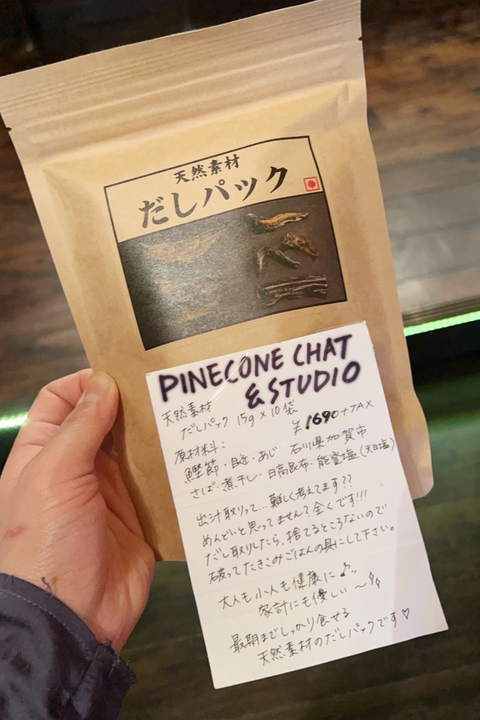 天然素材
だしパック
PINECONE CHAT
& STUDIO
天然素材
だしパック 15g×10袋
¥1690+TAX
原材料: 石川県加賀市
鰹節・目近・あじ
さば・煮干し・日高昆布・能登塩(天日塩)
出汁取りって...難しく考えてます??
めんどいと思ってません?全くです!!!
だし取りしたら、捨てるところないので
破ってたきこみごはんの具にして下さい。
大人も小人も健康に♪
家計にも優しい〜
最期までしっかり食せる
天然素材のだしパックです♡